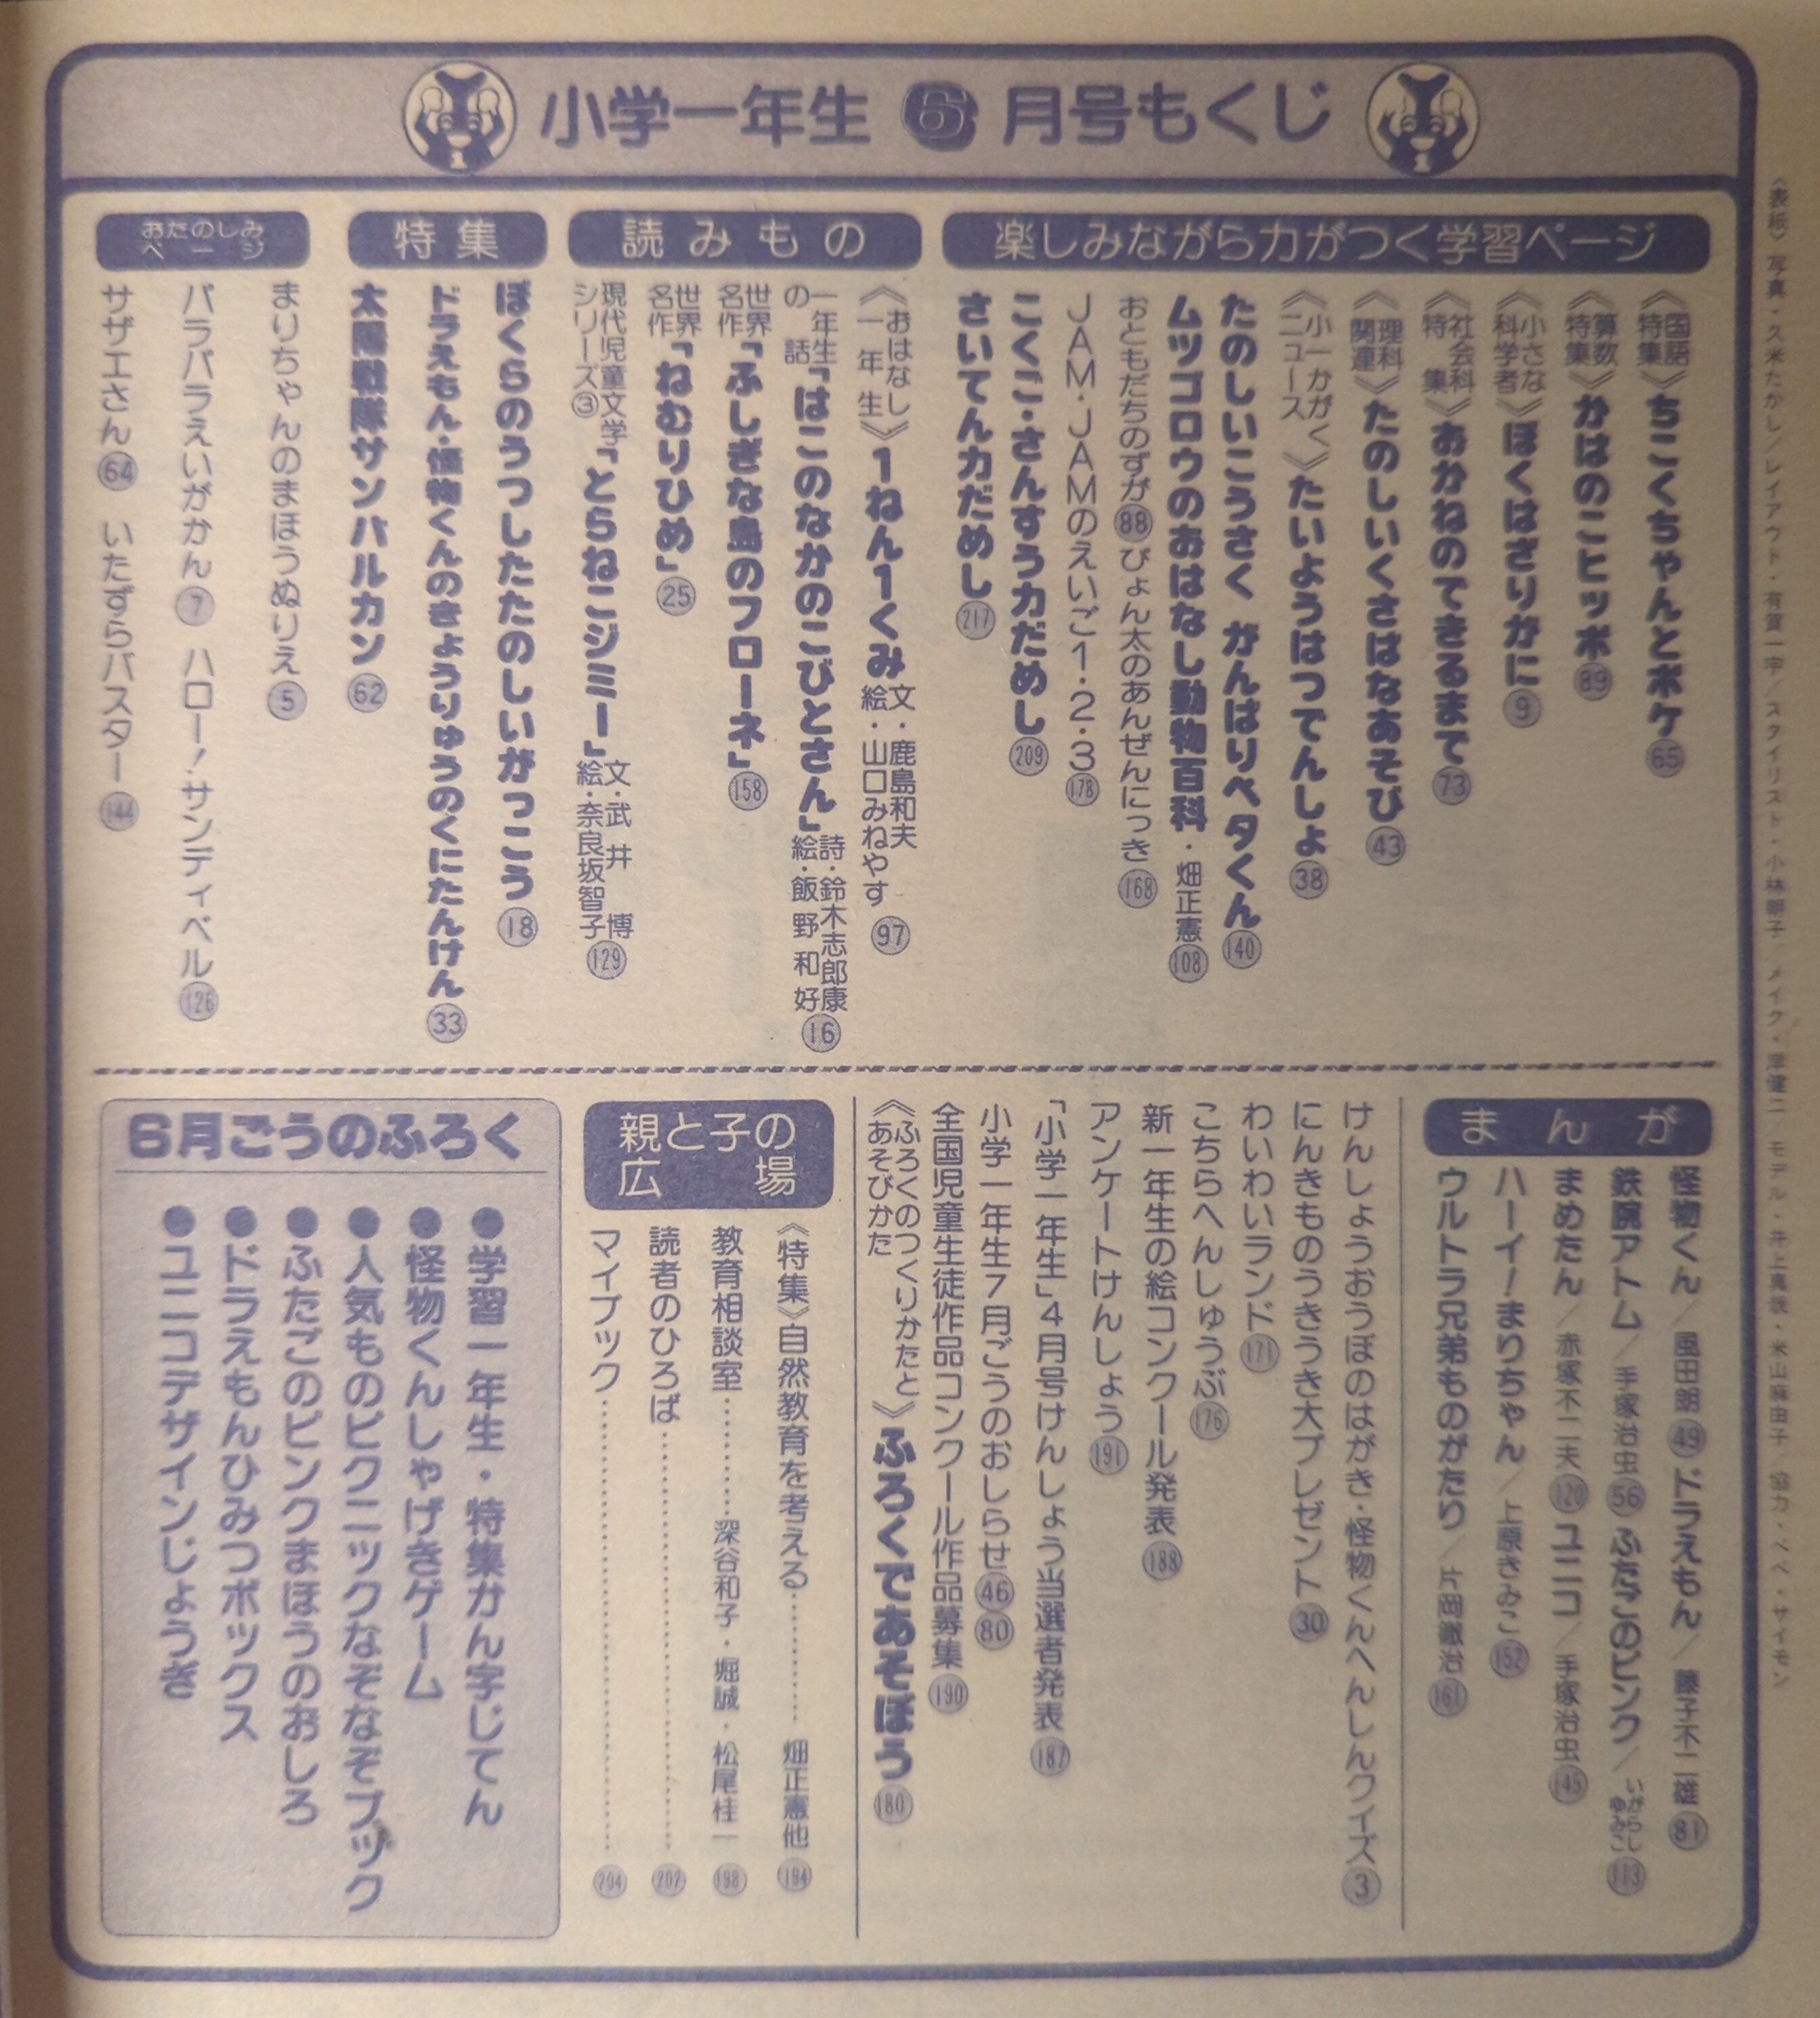 小学一年生 6 月号もくじ
楽しみながら力がつく学習ページ
《国語特集》ちこくちゃんとボケ 65
《算数特集》かばのこヒッポ 89
《小さな科学者》ぼくはざりがに 9
《社会科特集》おかねのできるまで 73
《理科関連》たのしいくさばなあそび 43
《小一かがくニュース》たいようはつでんしょ 38
たのしいこうさく がんばりペタくん 140
ムツゴロウのおはなし動物百科・畑正憲 108
おともだちのずが 88 ぴょん太のあんぜんにっき 168
JAM・JAMのえいご1・2・3 178
こくご・さんすう力だめし 209
さいてん力だめし 217
読みもの
《おはなし一年生》1ねん1くみ 文・鹿島和夫 絵・山口みねやす 97
一年生の話「はこのなかのこびとさん」詩・鈴木志郎康 絵・飯野和好 16
世界名作「ふしぎな島のフローネ」 158
世界名作「ねむりひめ」 25
現代児童文学シリーズ③「とらねこジミー」文・武井博 絵・奈良坂智子 129
特集
ぼくらのうつしたたのしいがっこう 18
ドラえもん・怪物くんのきょうりゅうのくにたんけん 33
太陽戦隊サンバルカン 62
おたのしみページ
まりちゃんのまほうぬりえ 5
パラパラえいがかん 7 ハロー!サンディベル 126
サザエさん 64 いたずらバスター 144
まんが
怪物くん/風田朗 49 ドラえもん/藤子不二雄 81
鉄腕アトム/手塚治虫 56 ふたごのピンク/いがらしゆみこ 113
まめたん/赤塚不二夫 120 ユニコ/手塚治虫 145
ハーイ!まりちゃん/上原きみこ 152
ウルトラ兄弟ものがたり/片岡徹治 161
けんしょうおうぼのはがき・怪物くんへんしんクイズ 3
にんきものうきうき大プレゼント 30
わいわいランド 171
こちらへんしゅうぶ 176
新一年生の絵コンクール発表 188
アンケートけんしょう 191
「小学一年生」4月号けんしょう当選者発表 187
小学一年生7月ごうのおしらせ 46 80
全国児童生徒作品コンクール作品募集 190
《ふろくのつくりかたとあそびかた》ふろくであそぼう 180
親と子の広場
《特集》自然教育を考える………… 畑正憲他 194
教育相談室…………深谷和子・堀誠・松尾桂一 198
読者のひろば………… 202
マイブック………… 204
6月ごうのふろく
●学習一年生・特集かん字じてん
●怪物くんしゃげきゲーム
●人気ものピクニックなぞなぞブック
●ふたごのピンクまほうのおしろ
●ドラえもんひみつボックス
●ユニコデザインじょうぎ
〈表紙〉写真・久米たかし/レイアウト・有賀一宇/スタイリスト・小林 子/メイク・岸健二 モデル・井上真 ・米山麻由子 協力・ベベ・サイモン